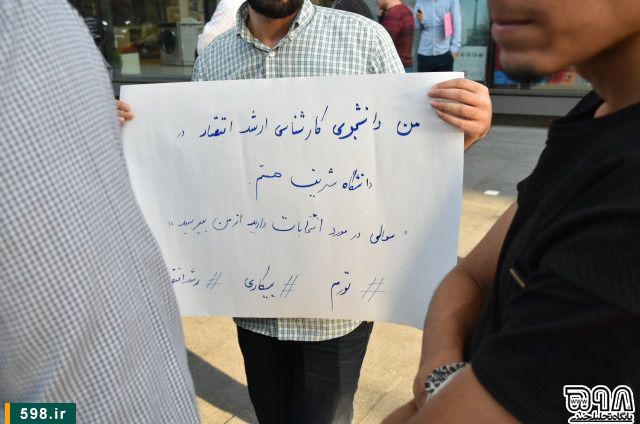 من دانشجوی کارشناسی ارشد اقتصاد در
دانشگاه شریف هستم.
"سوالی در مورد انتخابات دارید از من بپرسید"
# تورم # بیکاری # رشد
598.ir